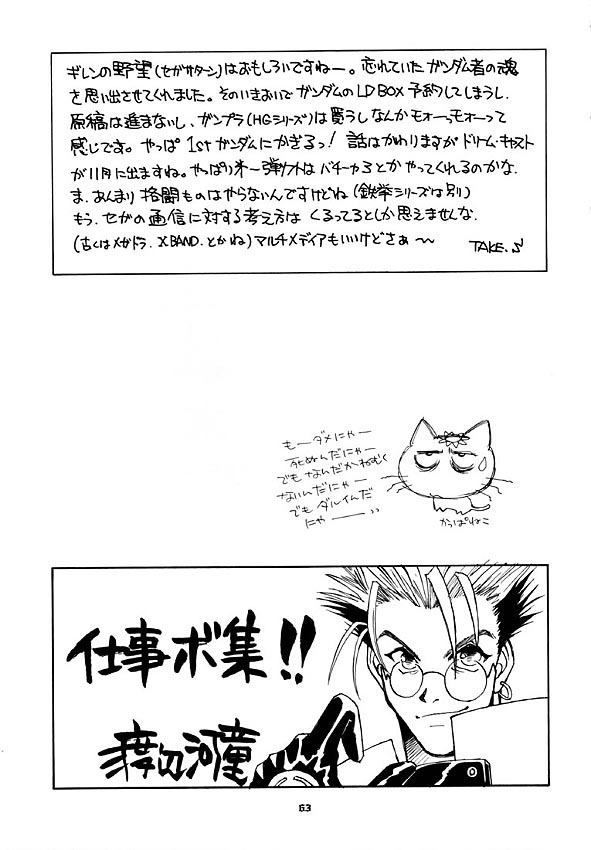 ギレンの野望(セガサターン)はおもしろいですねー。忘れていたガンダム者の魂
を思い出させてくれました。そのいきおいでガンダムのLD BOX予約してしまうし、
原稿は進まないし、ガンプラ(HGシリーズ)は買うしなんかモォーッモォーッって
感じです。やっぱ1stガンダムにかぎるっ!話はかわりますがドリームキャスト
が11月に出ますね。やっぱり第一弾ソフトはバーチャ3とかやってくれるのかな。
ま、あんまり格闘ものはやらないんですけどね(鉄拳シリーズは別)
もう、セガの通信に対する考え方はくるってるとしか思えませんな.
(古くはメガドラ.XBAND.とかね)マルチメディアもいいけどさぁ〜
TAKE.S
もーダメにゃー
死ぬんだにゃー
でもなんだかねむく
ないんだにゃー
でもダルイんだ
にゃー
かっぱねこ
仕事ボ集!!
渡辺河童
63